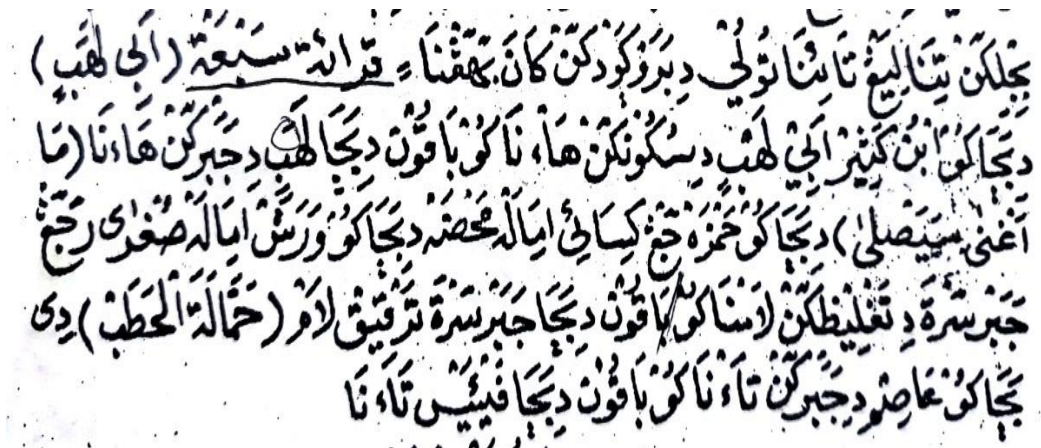 بَچٰلَكَنْ بِتَنَالِيَڠْ تَا بُتَا تُوْلُيْ دِ بَرَوْ كَوْدَكَنْ كَانَ بَهَڤْنَا = قرائة سبعة (اَبِى لَهَبٍ)
دِبَچَا كُوْ اِبْنُ كَثِيْرْ اَبِيْ لَهْبٍ دِسُكُوْنَكَنْ هَاءْ نَا كُوْ بَاقُوْنْ دِبَچَا لَهَبٍ دِجَبَرْكَنْ هَاءْ نَا (مَا
اَغْنٰى سَيَصْلٰى) دِبَچَا كُوْ حَمْزَةْ جَڠْ كِسَائِيْ اِمَالَهْ مَحْضَهْ دِبَچَا كُوْ وَرَشْ اِمَالَهْ صُغْرٰى رَجَڠْ
جَبَرْ سَرْةَ دِ تَغْلِيْظْكَنْ لَامْنَا كُوْ بَاقُوْنْ دِبَچَا جَبَرْ سَرْةَ تَرْقِيْقْ لَامْ (حَمَّالَةَ الْحَطَبْ) دِى
بَچَا كُوْ عَاصِمْ دِجَبَرْكَنْ تَاءْ نَا كُوْ بَاقُوْنْ دِبَچَا ڤَيْئَيْسْ تَاءْ نَا